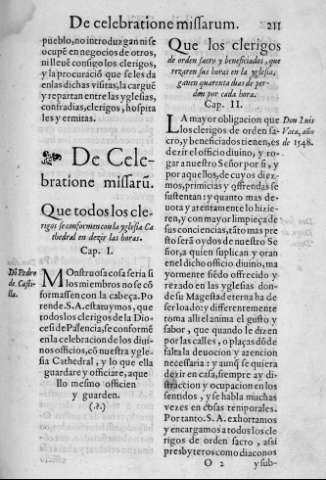 De celebratione missarum. 211
pueblo, no introduzgan ni se
ocupẽ en negocios de otros,
ni lleuẽ consigo los clerigos,
y la procuraciõ que se les da
en las dichas visitas, la carguẽ
y repartan entre las yglesias,
confradias, clerigos, hospita
les y ermitas.
De Cele-
bratione missarũ.
Que todos los cle-
rigos se conformen con la yglesia Ca
thedral en dezir las horas.
Cap. I.
Dõ Pedro
de Casti-
lla.
MOnstruosa cosa seria si
los miembros no se cõ
formassen con la cabeça. Po
rende S. A. estatuymos, que
todos los clerigos de la Dio
cesi de Palencia, se conformẽ
en la celebracion de los diui-
nos officios, cõ nuestra ygle-
sia Cathedral, y lo que ella
guardare y officiare, aque
llo mesmo officien
y guarden.
(.?.)
Que los clerigos
de orden sacro y beneficiados, que
rezaren sus horas en la yglesia,
ganen quarenta dias de per-
don por cada hora.
Cap. II.
Don Luis
Vaca, año
de 1548.
LA mayor obligacion que
los clerigos de orden sa-
cro, y beneficiados tienen, es
dezir el officio diuino, y ro-
gar a nuestro Señor por si, y
por aquellos, de cuyos diez-
mos, primicias y offrendas se
sustentan: y quanto mas de-
uota y atentamente lo hizie-
ren, y con mayor limpieça de
sus conciencias, tãto mas pre
sto serã oydos de nuestro Se
ñor, a quien suplican y oran
en el dicho officio diuino, ma
yormente siẽdo offrecido y
rezado en las yglesias don-
de su Magestad eterna ha de
ser loado: y differentemente
toma alli el anima el gusto y
sabor, que quando le dizen
por las calles, o plaças dõde
falta la deuocion y atencion
necessaria: y aunq̃ se quiera
dezir en casa, siempre ay di-
straccion y ocupacion en los
sentidos, y se habla muchas
vezes en cosas temporales.
Por tanto. S. A. exhortamos
y encargamos a todos los cle
rigos de orden sacro, assi
presbyteros como diaconos
O 2 y sub-